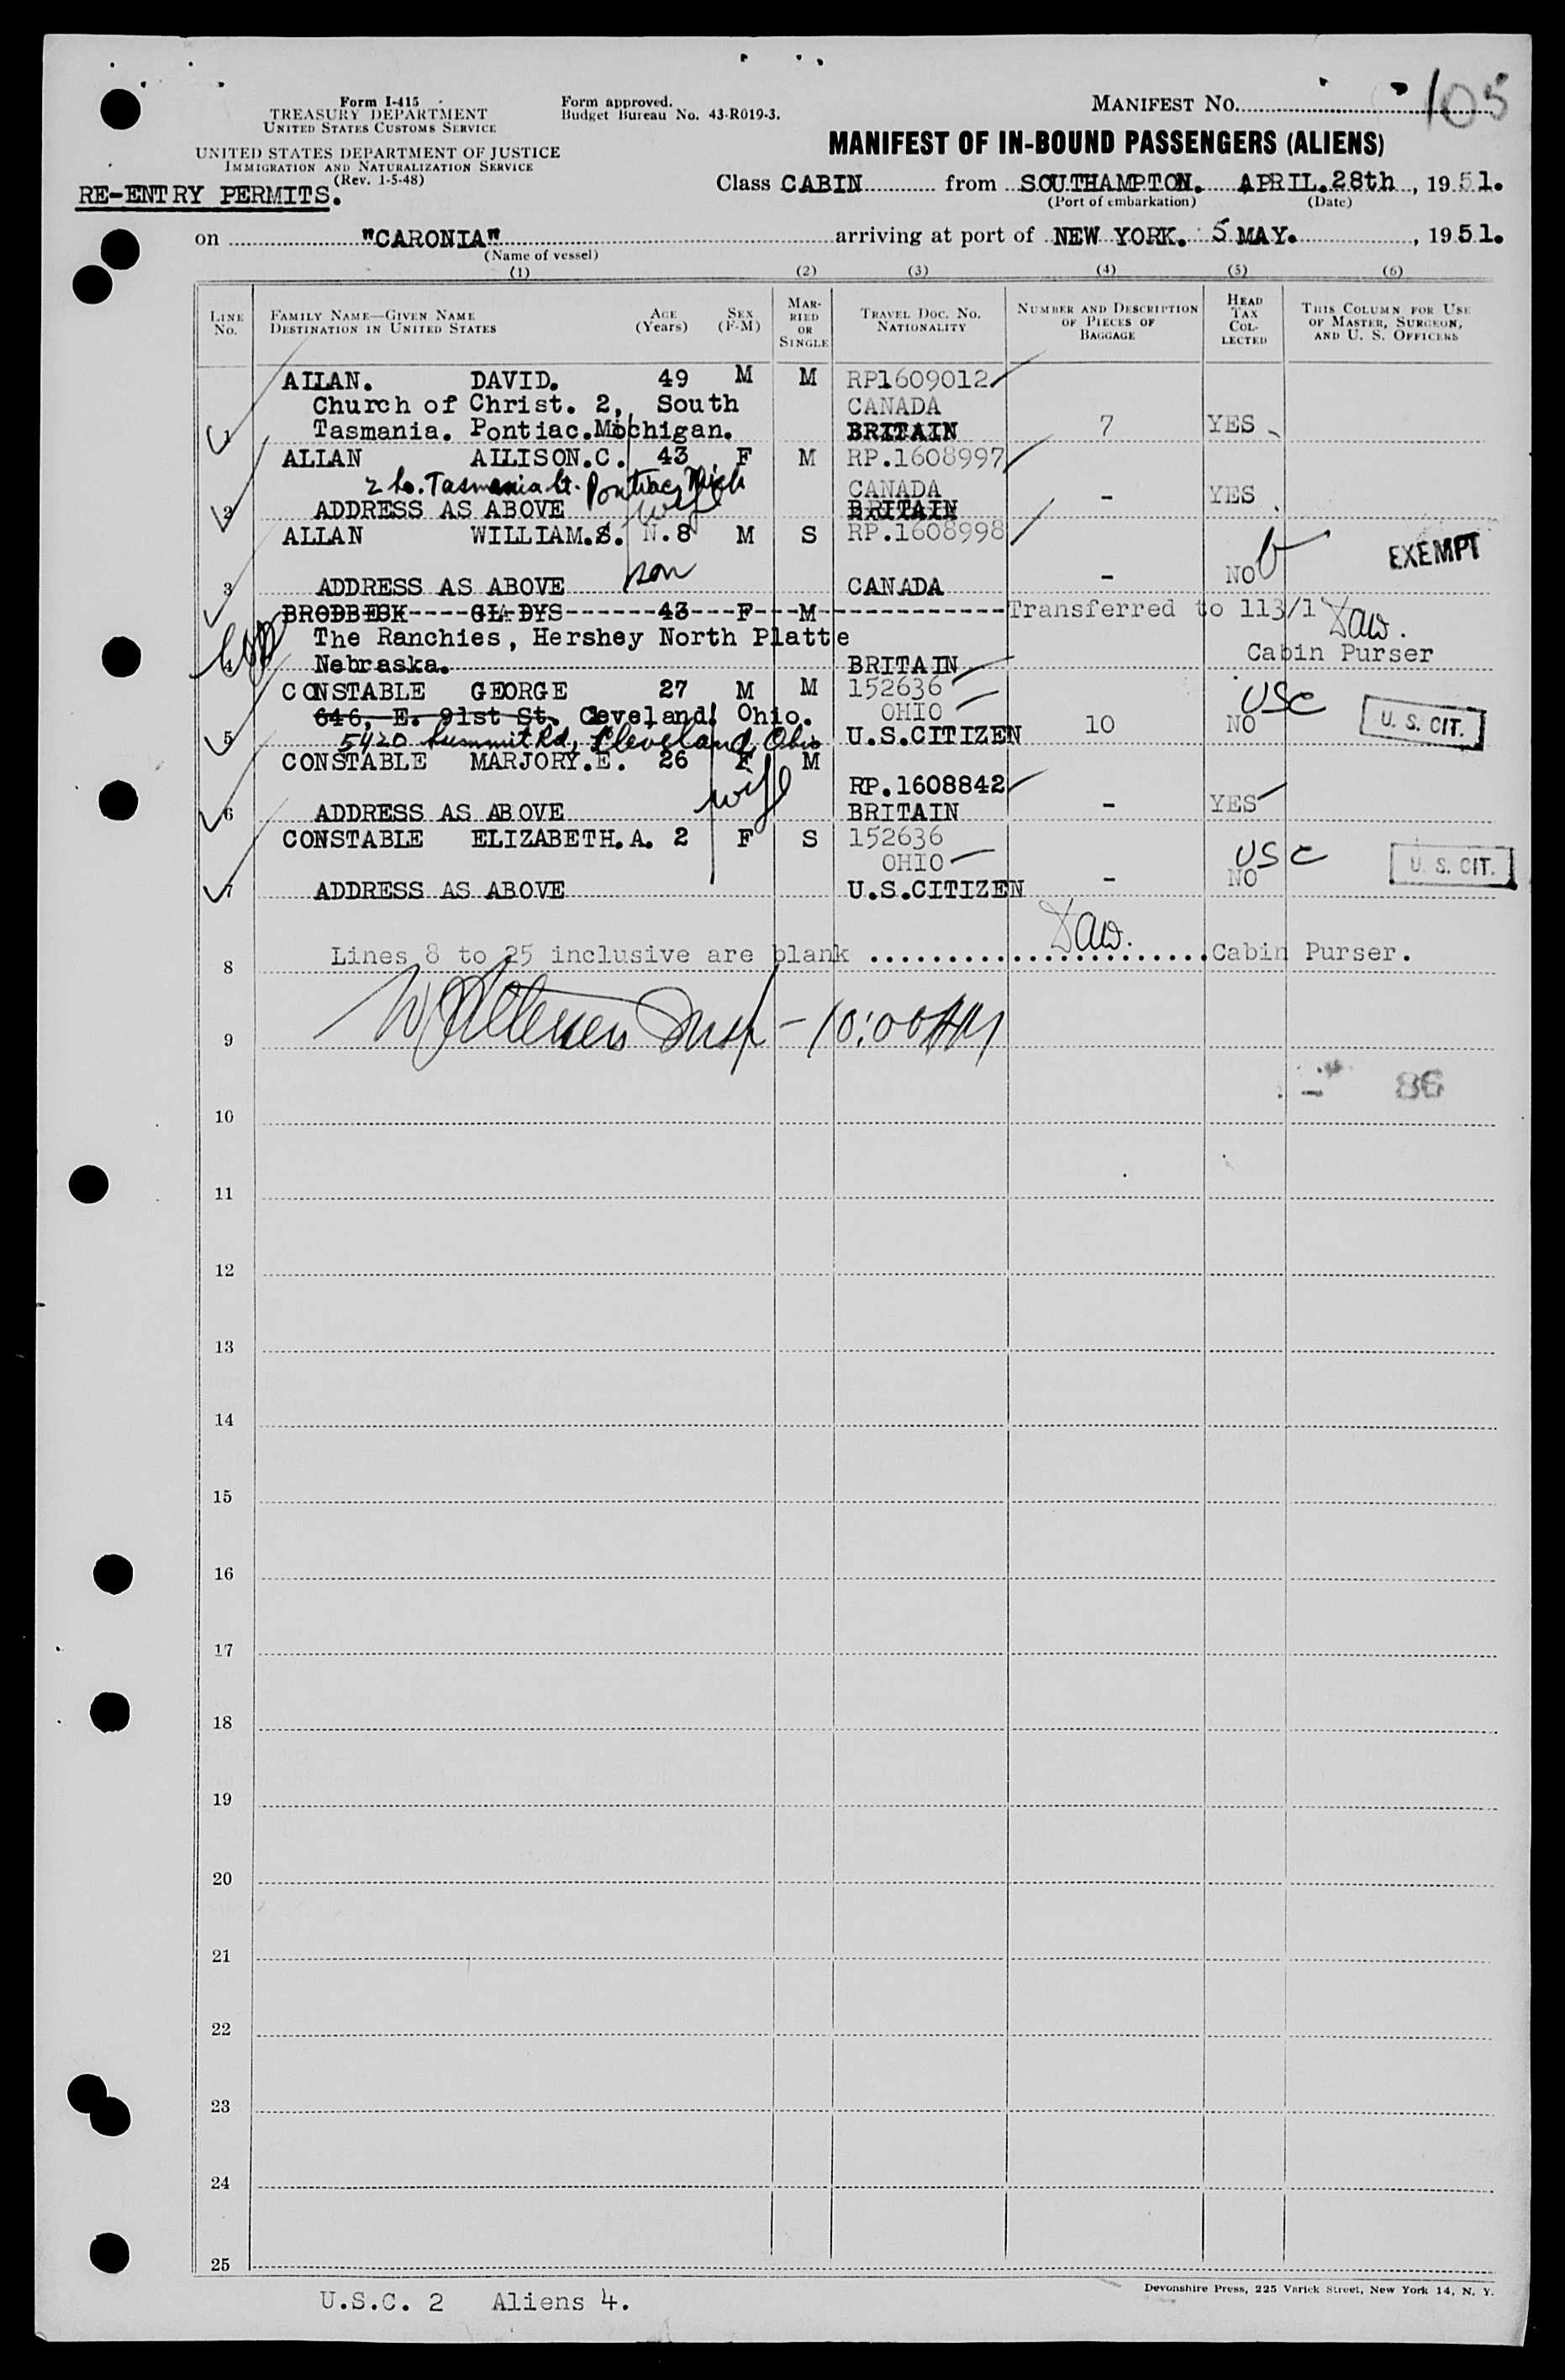 Form I-415
TREASURY DEPARTMENT
UNITED STATES CUSTOMS SERVICE
UNITED STATES DEPARTMENT OF JUSTICE
IMMIGRATION AND NATURALIZATION SERVICE
(Rev. 1-5-48)
RE-ENTRY PERMITS.
Form approved.
Budget Bureau No. 43-R019-3.
MANIFEST NO. 105
MANIFEST OF IN-BOUND PASSENGERS (ALIENS)
Class CABIN from SOUTHAMPTON. APRIL.28th, 1951.
(Port of embarkation) (Date)
on "CARONIA" arriving at port of NEW YORK. 5 MAY., 1951.
(Name of vessel)
(1) (2) (3) (4) (5) (6)
LINE NO. FAMILY NAME—GIVEN NAME DESTINATION IN UNITED STATES AGE (Years) SEX (F-M) MARRIED OR SINGLE TRAVEL DOC. NO. NATIONALITY NUMBER AND DESCRIPTION OF PIECES OF BAGGAGE HEAD TAX COLLECTED THIS COLUMN FOR USE OF MASTER, SURGEON, AND U. S. OFFICERS
ALLAN. DAVID. 49 M M RP1609012
Church of Christ. 2, South CANADA
1 Tasmania. Pontiac.Michigan. BRITAIN 7 YES
ALLAN ALLISON.C. 43 F M RP.1608997
2 So. Tasmania St. Pontiac Mich CANADA
2 ADDRESS AS ABOVE wife BRITAIN - YES
ALLAN WILLIAM.S. N.8 M S RP.1608998
son EXEMPT
3 ADDRESS AS ABOVE CANADA - NO
BRODBECK----GLADYS-------43---F---M-------------Transferred to 113/1
The Ranchies, Hershey North Platte Cabin Purser
4 Nebraska. BRITAIN
CONSTABLE GEORGE 27 M M 152636 USC
646, E. 91st St. Cleveland. Ohio. OHIO U. S. CIT.
5 5420 Summit Rd, Cleveland Ohio U.S.CITIZEN 10 NO
CONSTABLE MARJORY.E. 26 F M
wife RP.1608842
6 ADDRESS AS ABOVE BRITAIN - YES
CONSTABLE ELIZABETH.A. 2 F S 152636
OHIO USC U. S. CIT.
7 ADDRESS AS ABOVE U.S.CITIZEN - NO
8 Lines 8 to 25 inclusive are blank ......................Cabin Purser.
9 Insp - 10:00AM
86
10
11
12
13
14
15
16
17
18
19
20
21
22
23
24
25
Devonshire Press, 225 Varick Street, New York 14, N. Y.
U.S.C. 2 Aliens 4.